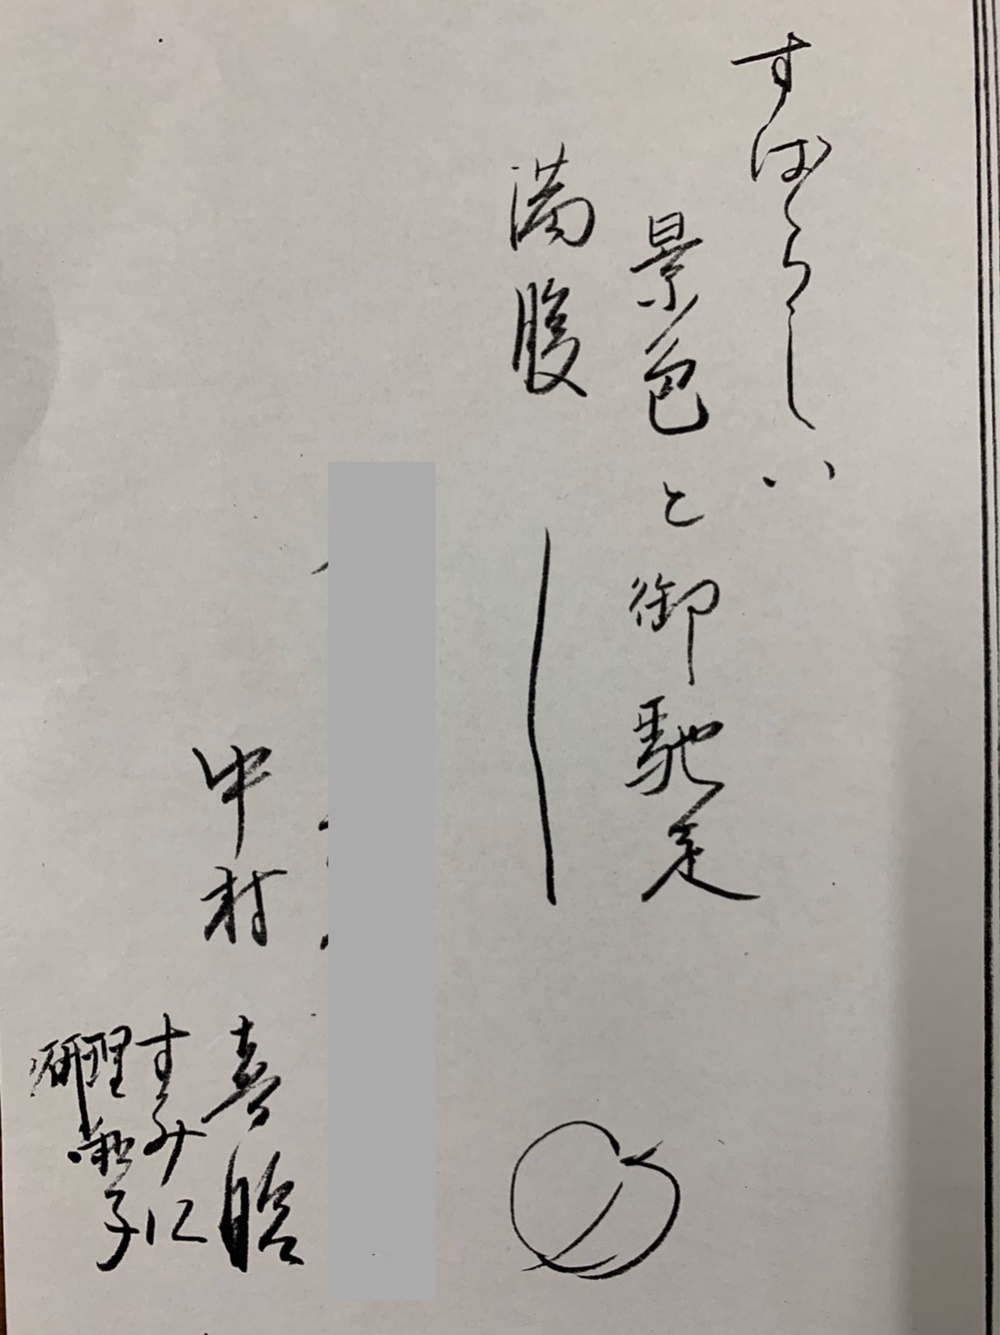 すばらしい
景色と御馳走
満腹
中村
喜
すみに
理
子